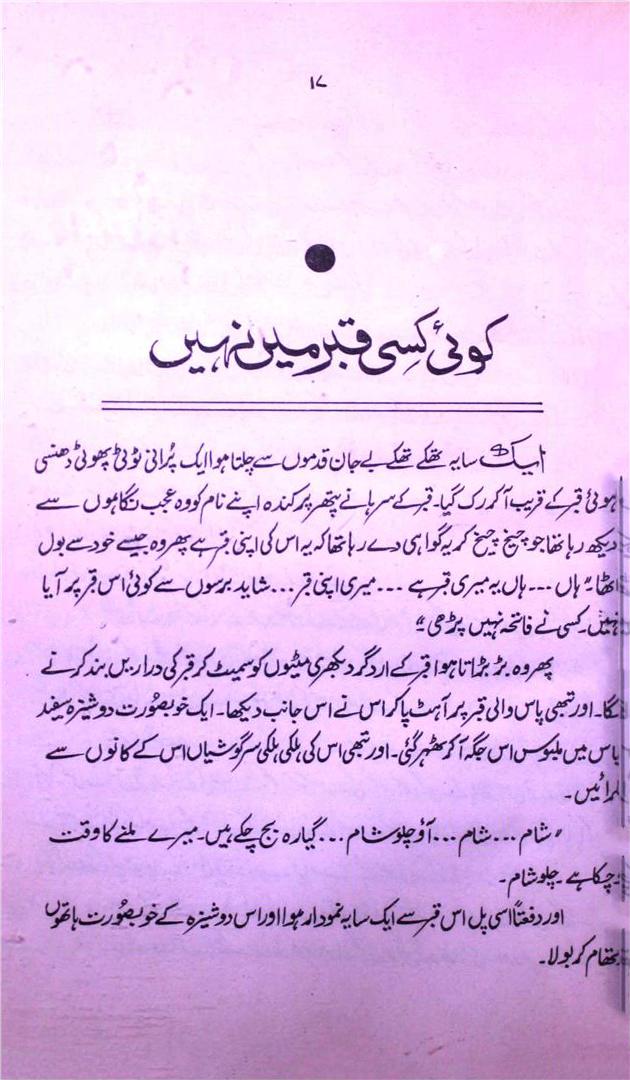 ۱۷
کوئی کسی قبر میں نہیں
ایک سایہ تھکے تھکے بے جان قدموں سے چلتا ہوا ایک پُرانی ٹوٹی پھوٹی دھنسی
ہوئی قبر کے قریب آکر رک گیا۔ قبر کے سرہانے پتھر پر کندہ اپنے نام کو وہ عجب نگاہوں سے
دیکھ رہا تھا جو چیخ چیخ کر یہ گواہی دے رہا تھا کہ یہ اس کی اپنی قبر ہے پھر وہ جیسے خود سے بول
اٹھا "ہاں ۔۔۔ ہاں یہ میری قبر ہے ۔۔۔ میری اپنی قبر ۔۔۔ شاید برسوں سے کوئی اس قبر پر آیا
نہیں۔ کسی نے فاتحہ نہیں پڑھی"
پھر وہ بڑبڑاتا ہوا قبر کے اردگرد بکھری مٹیوں کو سمیٹ کر قبر کی دراریں بند کرنے
لگا۔ اور تبھی پاس والی قبر پر آہٹ پاکر اس نے اس جانب دیکھا۔ ایک خوبصُورت دوشیزہ سفید
باس میں ملبوس اس جگہ آکر ٹھہر گئی۔ اور تبھی اس کی ہلکی ہلکی سرگوشیاں اس کے کانوں سے
ٹکرائیں۔
"شام ۔۔۔ شام ۔۔۔ آؤ چلو شام ۔۔۔ گیارہ بج چکے ہیں۔ میرے ملنے کا وقت
ہوچکا ہے۔ چلو شام۔
اور دفعتاً اسی پل اس قبر سے ایک سایہ نمودار ہوا اور اس دوشیزہ کے خوبصُورت ہاتھوں
تھام کر بولا۔